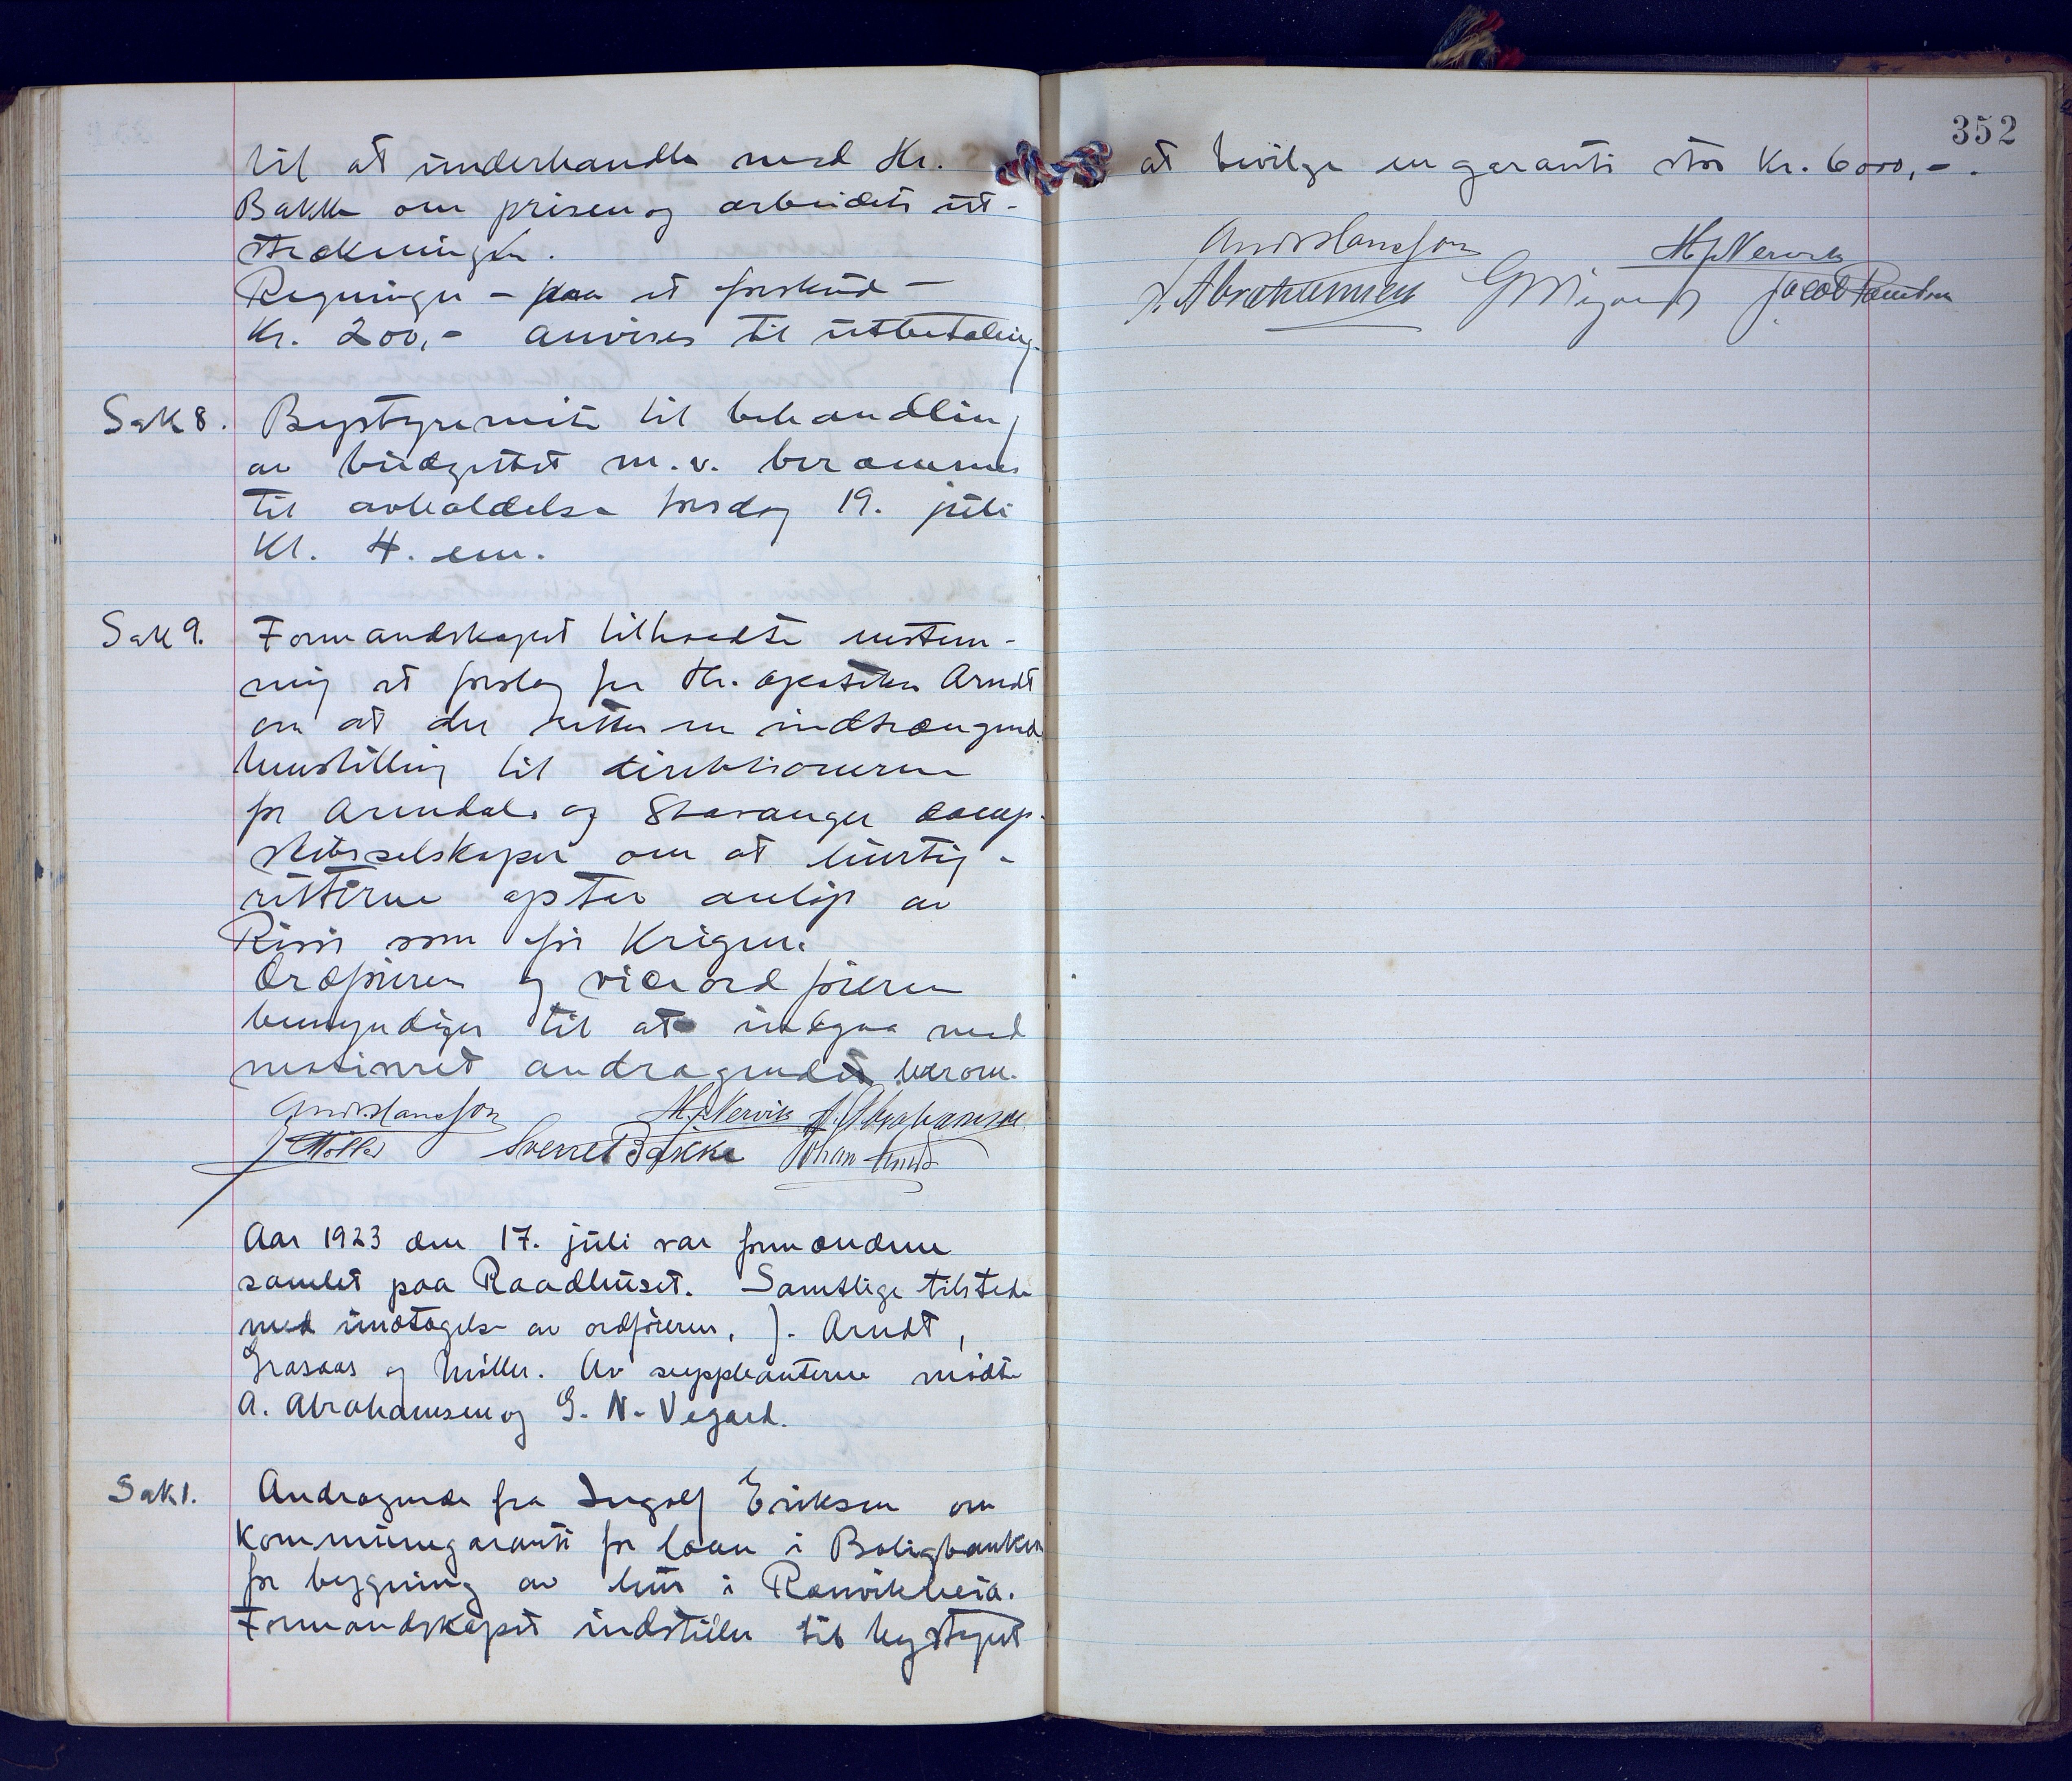 til at underhandle med Hr.
Bakke om prisen og arbeidets ut-
strækninger.
Regninger - paa et forskud -
Kr. 200,- anvises til utbetaling.
Sak 8. Bystyremøte til behandling
av budgettet m.v. berammes
til avholdelse torsdag 19. juli
Kl. 4. em.
Sak 9. Formandskapet tiltraadte enstem-
mig et forslag fra Hr. apoteker Arndt
om at der rettes en indtrængende
henstilling til direktionerne
for Arendals og Stavanger damp-
skibsselskaper om at hurtig-
rutterne optar anløp av
Risør som før Krigen.
Ordføreren og viceordføreren
bemyndiges til at indgaa med
motiveret andragende herom.
Andr. Hansson H. J. Nervik A. Abrahamsen
J. Møller Sverre Bakke Johan Arndt
Aar 1923 den 17. juli var formændene
samlet paa Raadhuset. Samtlige tilstede
med undtagelse av ordføreren, J. Arndt,
Grasaas og Møller. Av suppleanterne mødte
A. Abrahamsen og G. N. Vegard.
Sak 1. Andragende fra Ingolf Eriksen om
Kommunegaranti for laan i Boligbanken
for bygning av hus i Ranvikheia.
Formandskapet indstiller til bystyret
352
at bevilge en garanti stor Kr. 6000,-.
Andr Hansson H. J. Nervik
A. Abrahamsen G N Vegard Jacob